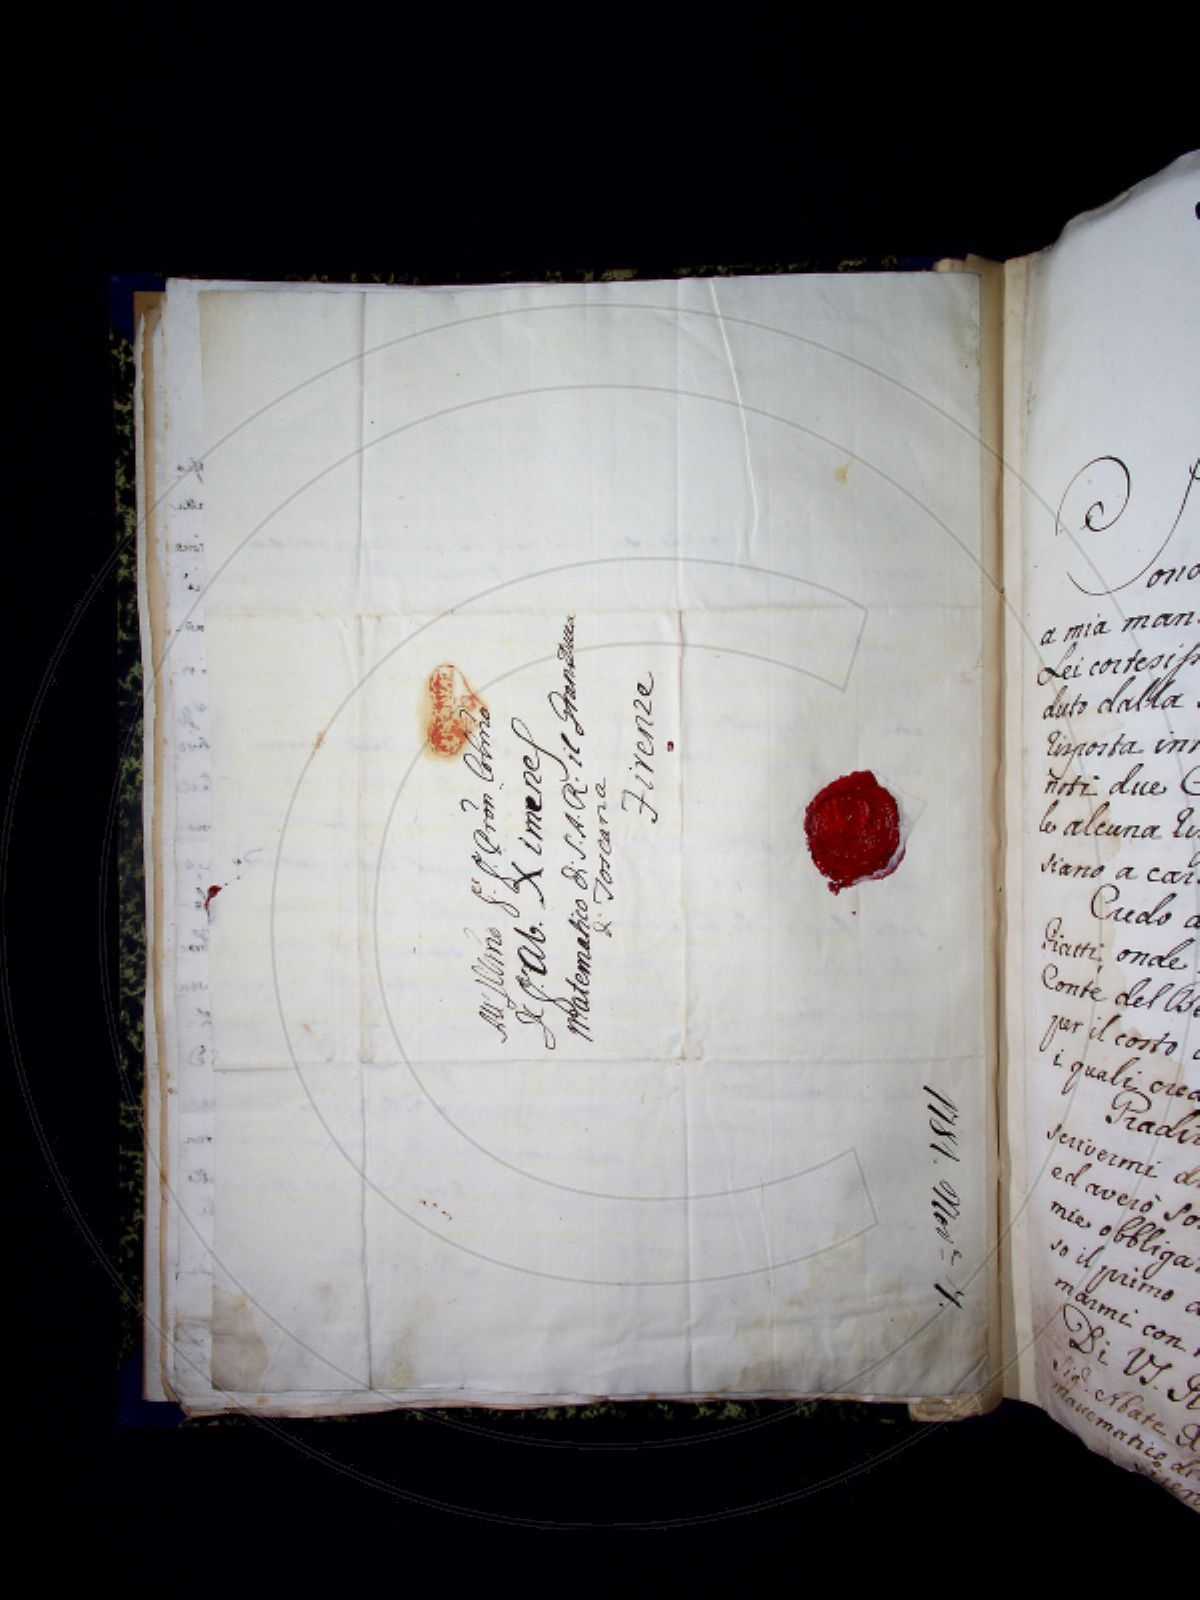 All' Illmo Sr. Sr. Pron. Colmo
Il Sr. Ab. Ximenes
Matematico di S.A.R. il Granduca
di Toscana
Firenze
1781.
ono
a mia man
Lei cortesiss
duto dalla
risposta inn
noti due C
le alcuna
siano a car
Credo a
Piatti, onde
Conte del Be
per il costo
i quali cred
Pradi
scrivermi di
ed averò so
mie obbliga
so il primo
marmi con
Di VS. Il
Sigr. Abate X
Matematico di